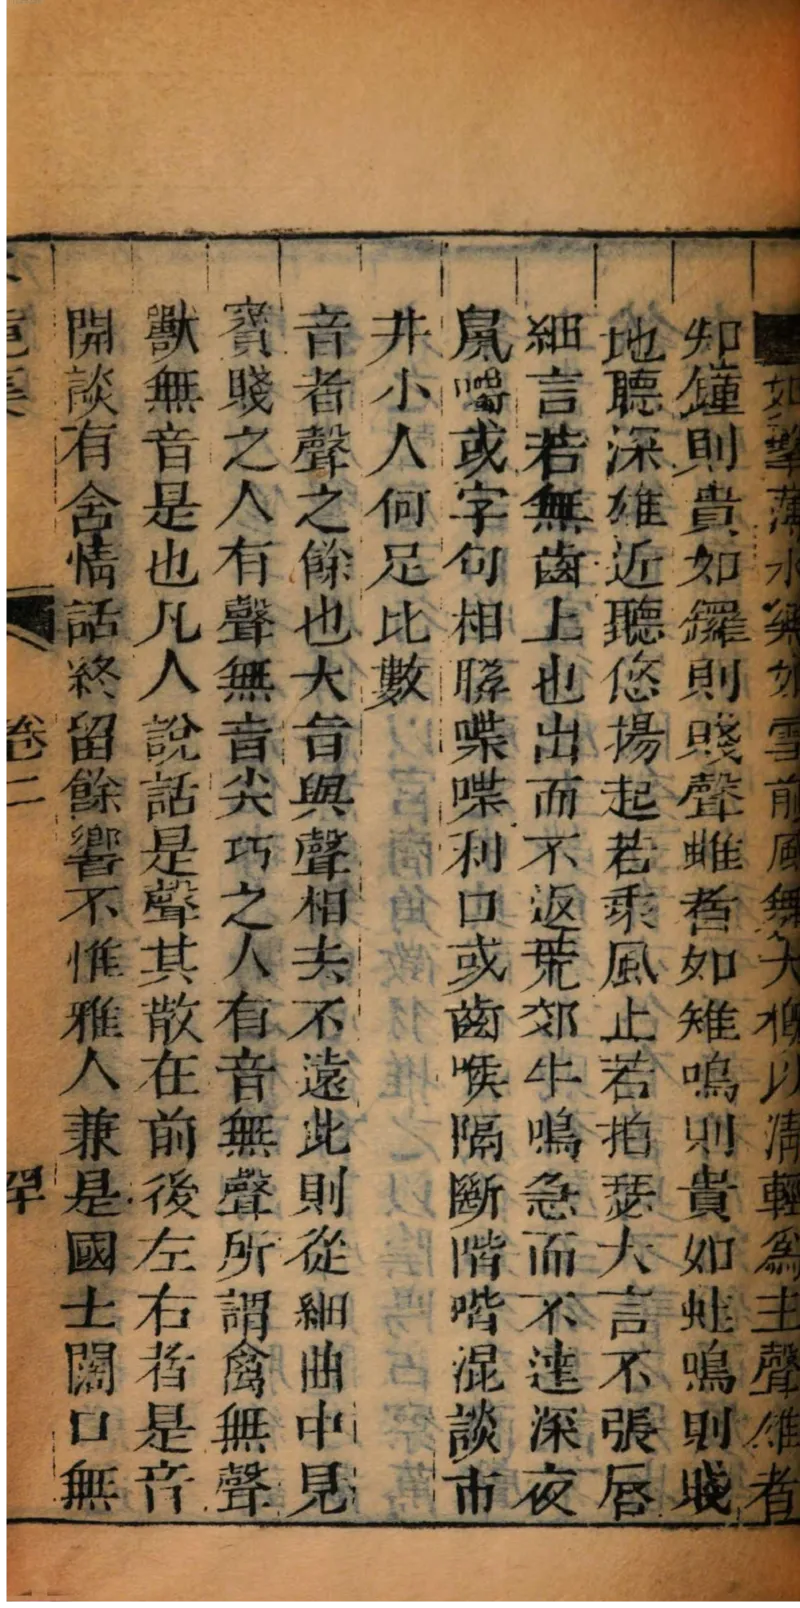 如擊薄冰梁如雪前風舞大概以清輕為主聲雄者
如鐘則貴如鑼則賤聲雌者如雉鳴則貴如蛙鳴則賤
地聽深雄近聽悠揚起若乘風止若拍瑟大言不張唇
細言若無齒上也出而不返荒郊牛鳴急而不達深夜
鼠嚼或字句相聯喋喋利口或齒喉隔斷喈喈混談市
井小人何足比數
音者聲之餘也大音與聲相去不遠此則從細曲中見
賓賤之人有聲無音尖巧之人有音無聲所謂禽無聲
獸無音是也凡人說話是聲其散在前後左右者是音
開談有含情話終留餘響不惟雅人兼是國士闊口無
卷二